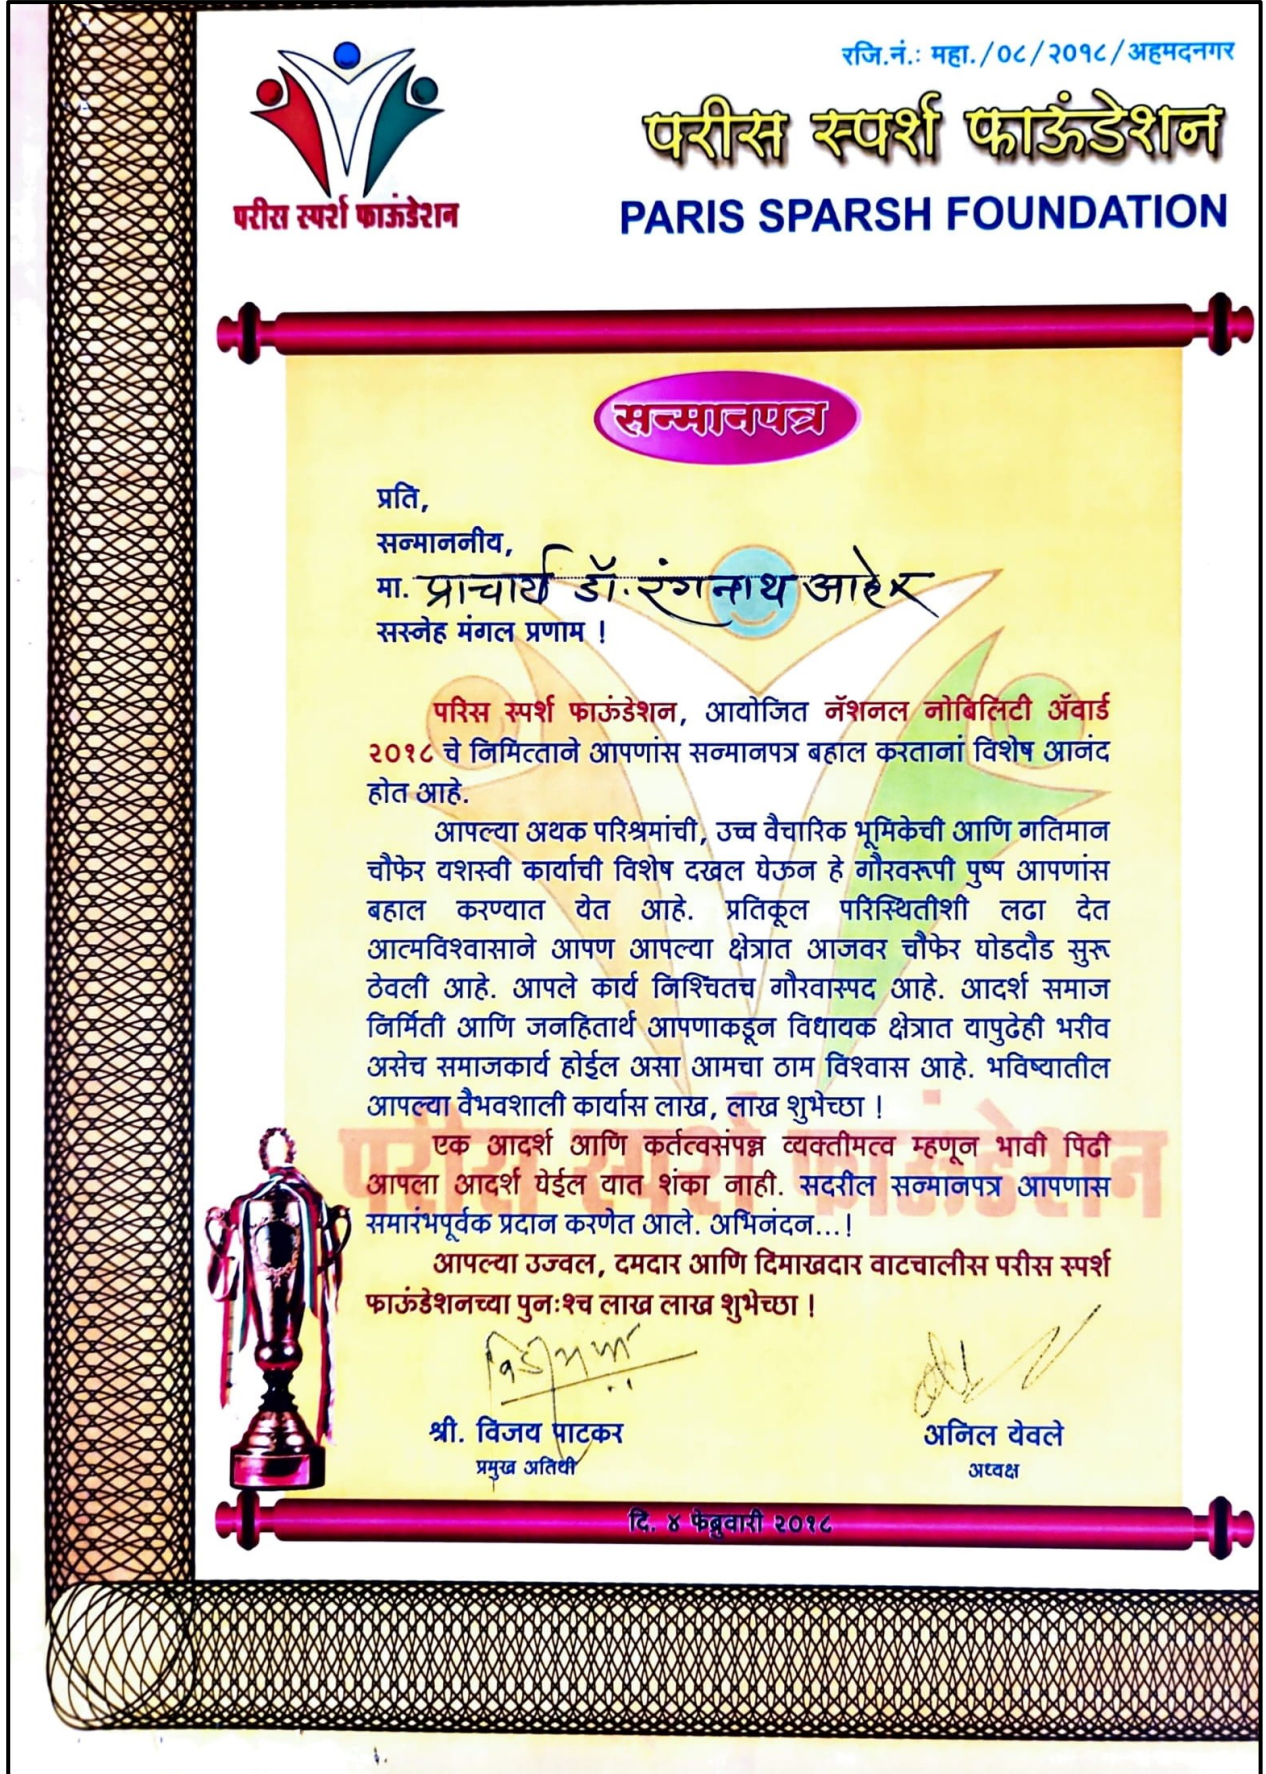 रजि.नं.: महा./०८/२०१८/अहमदनगर
परीस स्पर्श फाऊंडेशन
परीस स्पर्श फाऊंडेशन
PARIS SPARSH FOUNDATION
सन्मानपत्र
प्रति,
सन्माननीय,
मा. प्राचार्य डॉ. रंगनाथ आहेर
सस्नेह मंगल प्रणाम !
परिस स्पर्श फाऊंडेशन, आयोजित नॅशनल नोबिलिटी ॲवार्ड
२०१८ चे निमित्ताने आपणांस सन्मानपत्र बहाल करतानां विशेष आनंद
होत आहे.
आपल्या अथक परिश्रमांची, उच्च वैचारिक भूमिकेची आणि गतिमान
चौफेर यशस्वी कार्याची विशेष दखल घेऊन हे गौरवरूपी पुष्प आपणांस
बहाल करण्यात येत आहे. प्रतिकूल परिस्थितीशी लढा देत
आत्मविश्वासाने आपण आपल्या क्षेत्रात आजवर चौफेर घोडदौड सुरू
ठेवली आहे. आपले कार्य निश्चितच गौरवास्पद आहे. आदर्श समाज
निर्मिती आणि जनहितार्थ आपणाकडून विधायक क्षेत्रात यापुढेही भरीव
असेच समाजकार्य होईल असा आमचा ठाम विश्वास आहे. भविष्यातील
आपल्या वैभवशाली कार्यास लाख, लाख शुभेच्छा !
एक आदर्श आणि कर्तत्वसंपन्न व्यक्तीमत्व म्हणून भावी पिढी
आपला आदर्श घेईल यात शंका नाही. सदरील सन्मानपत्र आपणास
समारंभपूर्वक प्रदान करणेत आले. अभिनंदन...!
आपल्या उज्वल, दमदार आणि दिमाखदार वाटचालीस परीस स्पर्श
फाऊंडेशनच्या पुनःश्च लाख लाख शुभेच्छा !
परीस स्पर्श फाऊंडेशन
श्री. विजय पाटकर
प्रमुख अतिथी
अनिल येवले
अध्यक्ष
दि. ४ फेब्रुवारी २०१८